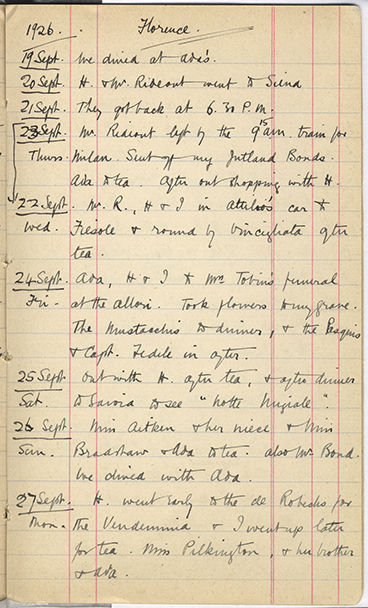 1926. Florence.
19 Sept. We dined at Ada's.
20 Sept. H. & Mr. Rideout went to Siena
21 Sept. They got back at 6.30 P.M.
23 Sept. Mr. Rideout left by the 9.15 a.m. train for
Thurs. Milan. Sent off my Jutland Bonds.
Ada to tea. After out shopping with H.
22 Sept. Mr. R., H & I in Attilio's car to
Wed. Fiesole & round by Vincigliata after
tea.
24 Sept. Ada, H & I to Mrs Tobin's funeral
Fri. at the Allori. Took flowers to my grave.
The Mustacchis to dinner, & the
& Capt. Fedile in after.
25 Sept. Out with H. after tea, & after dinner
Sat. to Savoia to see "Notte Nuziale".
26 Sept. Miss Aitken & her niece & Miss
Sun. Bradshaw & Ada to tea. also Mr Bond.
We dined with Ada.
27 Sept. H. went early to the de for
Mon. the Vendemmia & I went up later
for tea. Miss Pilkington, & her brother
& Ada.